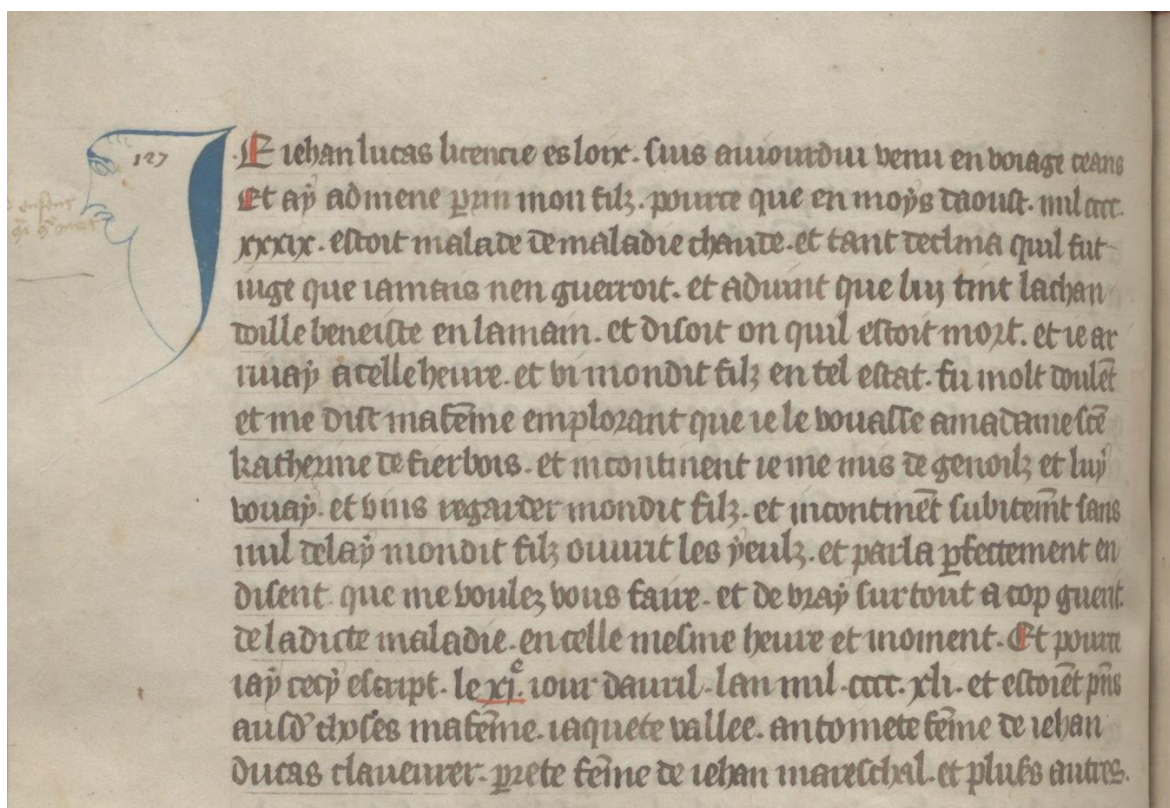 127
JE iehan lucas licencie es loix. suis auiourdui venu en voiage ceans
Et aÿ admene perrin mon filz. pource que en moÿs daoust. mil cccc.
xxxix. estoit malade de maladie chaude. et tant declina quil fut
iuge que iamais nen guerroit. et aduint que luy tint lachan
doille beneiste en lamain. et disoit on quil estoit mort. et ie ar
riuaÿ a celle heure. et vi mondit filz en tel estat. fu molt doulēt
et me dist ma fēme emplorant que ie le vouasse amadame scē
katherine de fierbois. et incontinent ie me mis de genoilz et luÿ
vouaÿ. et vins regarder mondit filz. et incontinēt subitemēt sans
nul delaÿ mondit filz ouurit les ÿeulz. et parla ꝑfectement en
disent que me voulez vous faire. et de vraÿ surtout a cop guerit
de ladicte maladie. en celle mesme heure et moment. Et pource
iaÿ cecÿ escript. le xiᵉ. iour dauril. lan mil. cccc. xli. et estoiēt pñs
ausd' choses ma fēme. iaquete vallee. antoniete fēme de iehan
ducas claveurer. perrete fēme de iehan mareschal. et plus̄ autres.